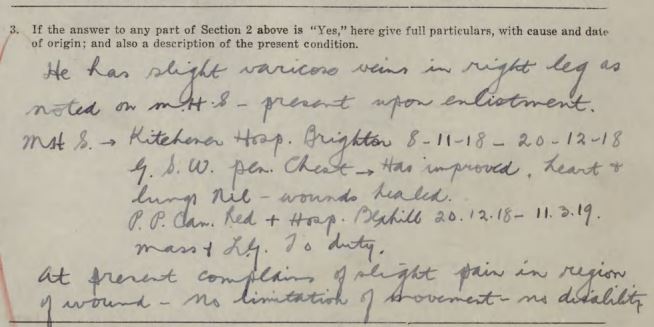 3. If the answer to any part of Section 2 above is "Yes," here give full particulars, with cause and date
of origin; and also a description of the present condition.
He has slight varicose veins in right leg as
noted on M.H.S - present upon enlistment.
MH S. → Kitchener Hosp. Brighton 8-11-18 - 20-12-18
G. S. W. pen. Chest → Has improved, heart &
lungs Nil - wounds healed.
P. P. Can. Red + Hosp. Bexhill 20.12.18 - 11.3.19.
mass + To duty.
At present complains of slight pain in region
of wound - no limitation of movement - no disability